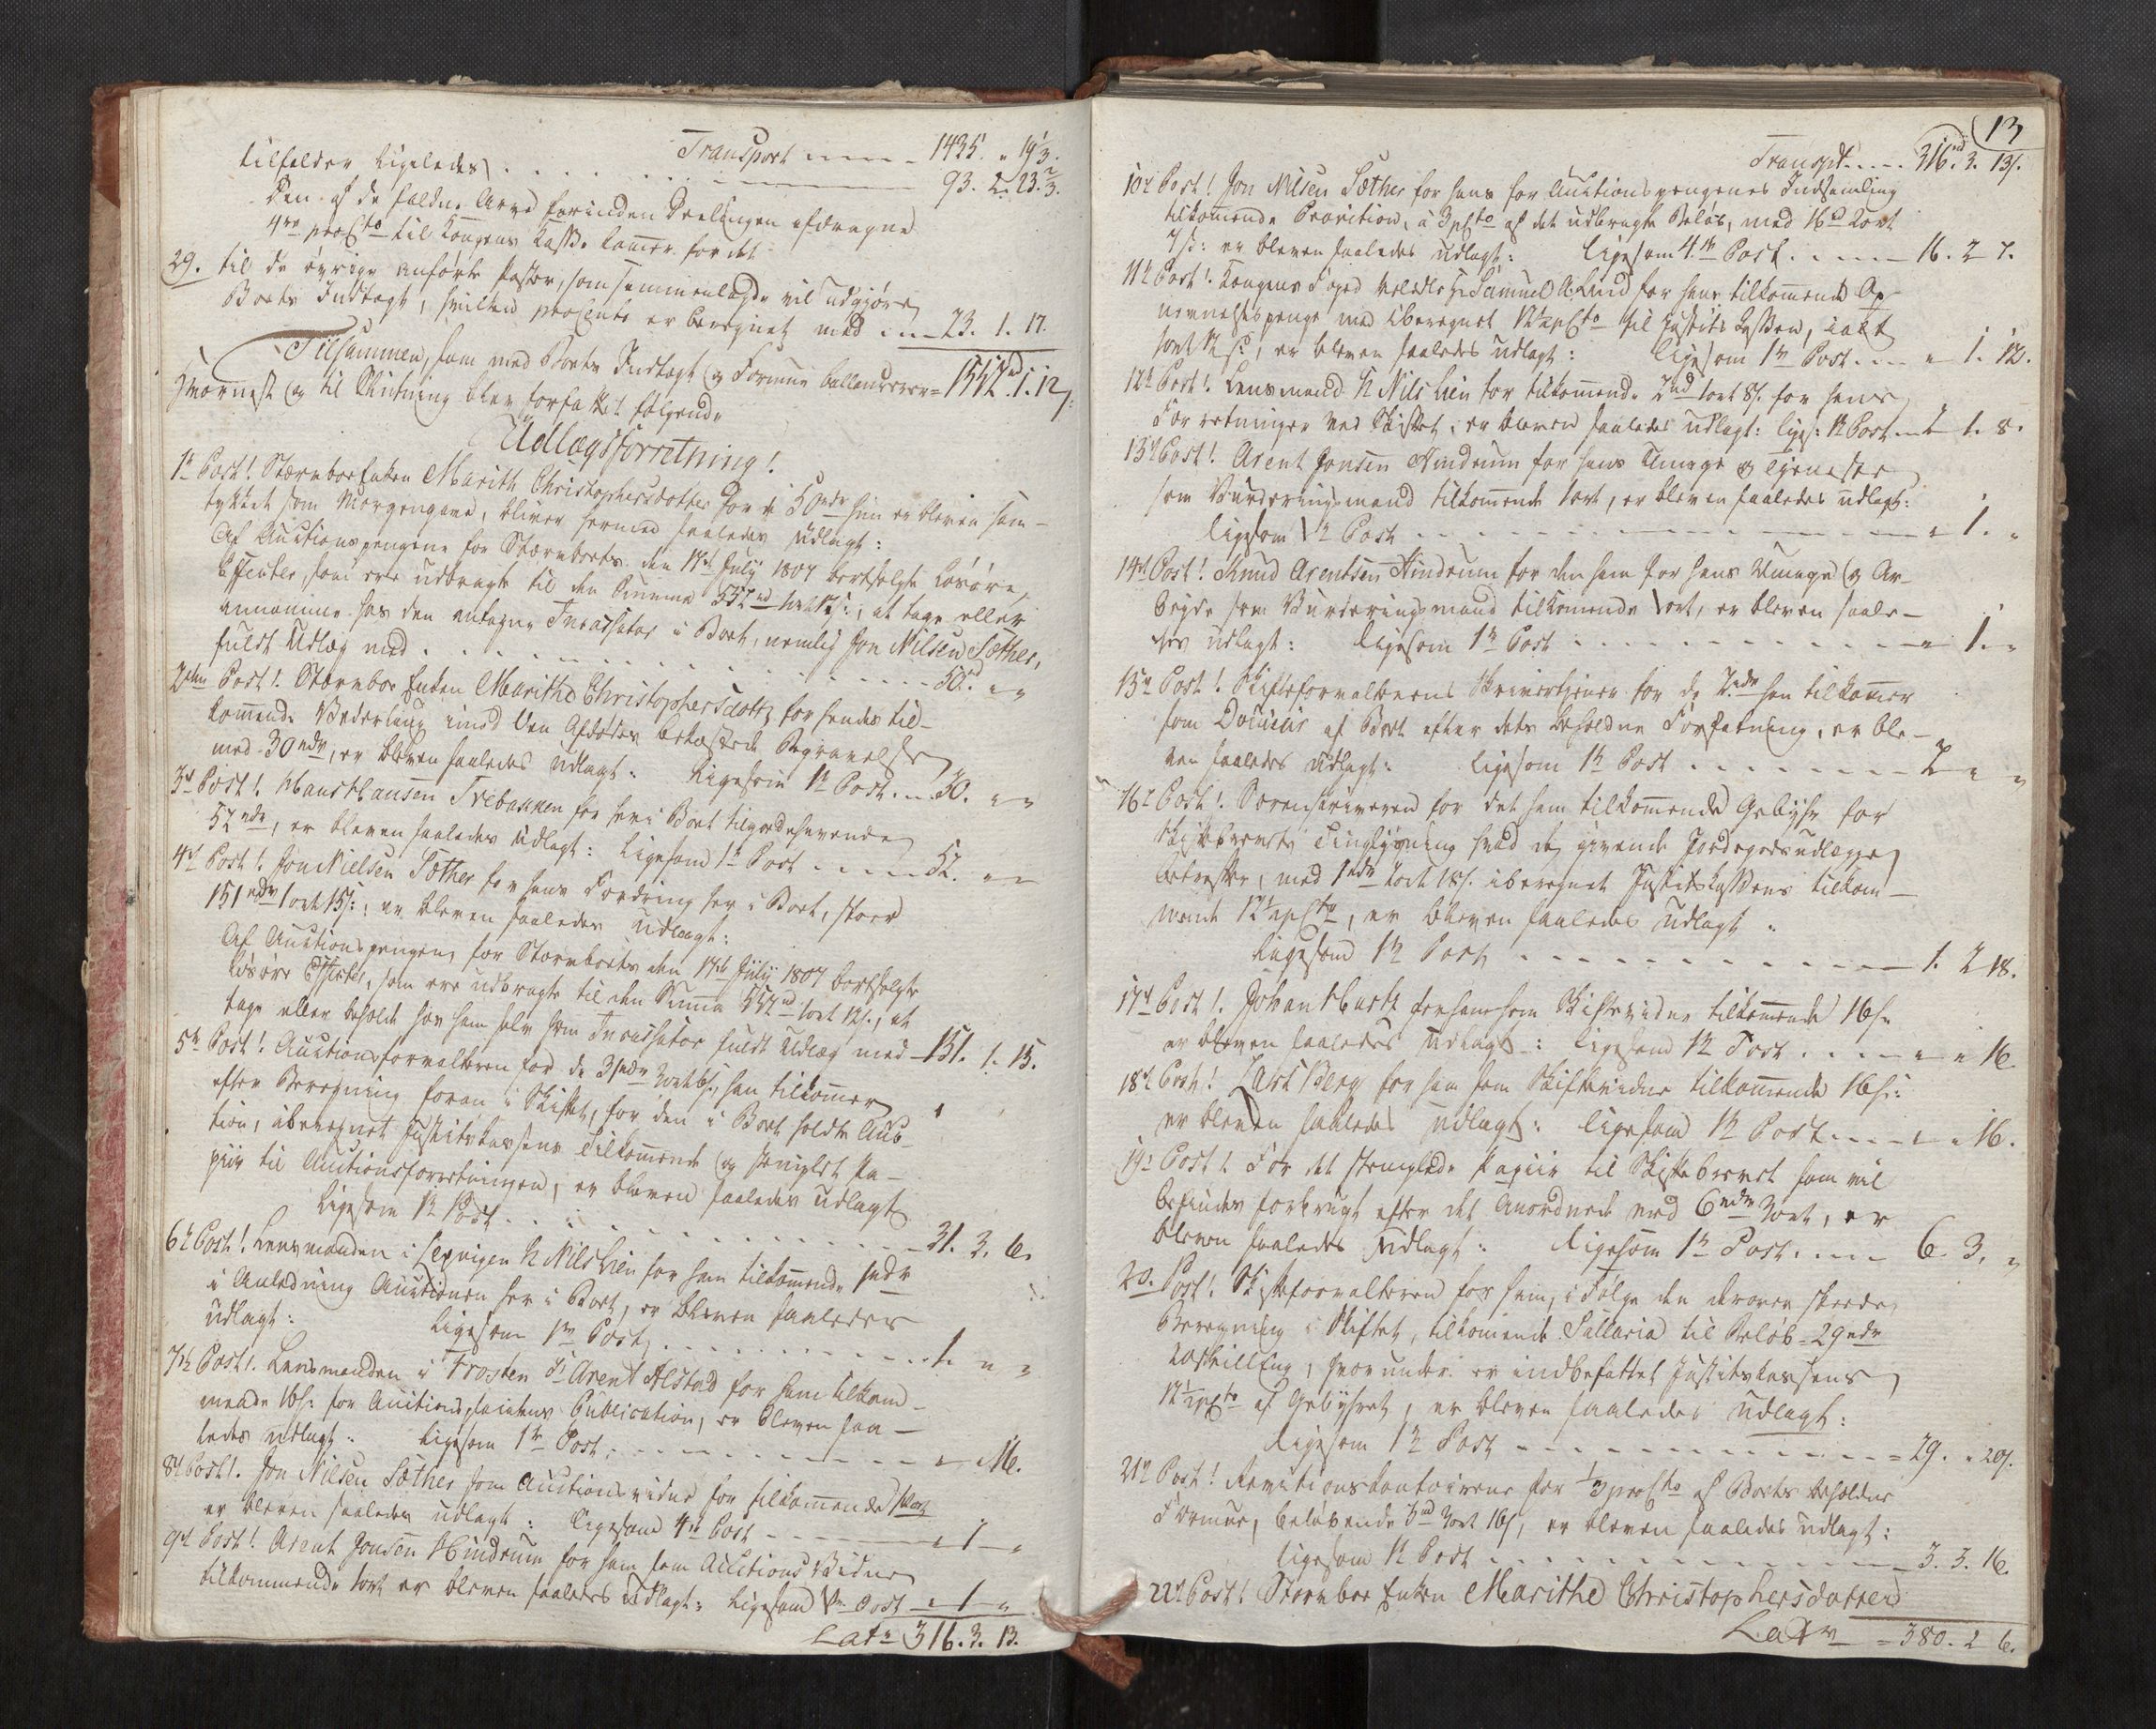 Transport - - - - 1435. „ 19⅓.
tilfalder ligeledes . . . . . . . 93. 2. 23.⅔.
Den af de faldne Arve forinden Deelingen afdragne
4re proCto til Kongens Kasse kommer for det
29. til de øvrige anførte Poster, som sammenlagde vil udgjøre
Boets Indtægt, hvilken proCento er beregnet med - - - 23. 1. 17.
Tilsammen, som med Boets Indtægt og Formue ballancerer = 1552rd 1. 12/:
Hvornæst og til Slutning blev forfattet følgende
Udlægsforretning!
1te Post! Stærvboe Enken Marith Christophersdotter for de 50rdr hun er bleven sam-
tykket som Morgengave, bliver hermed saaledes udlagt:
Af Auctionspengene for Stærvboets den 17de July 1807 bortsolgte Løsøre
Effecter, som ere udbragte til den Summa 552rd 1ort 12s:, at tage eller
annamme hos den antagne Incassator i Boet, nemlig Jon Nilsen Sæther,
fuldt Udlæg med . . . . . . . . . 50rd „ „
2den Post! Stærvboe Enken Marithe Christophersdotter for hendes til-
kommende Vederlaug imod den Afdødes bekostede Begravelse
med 30rdr, er bleven saaledes udlagt: Ligesom 1te Post - - 30. „ „
3de Post! Hans Hansen Trebakken for her i Boet tilgodehavende
52rdr, er bleven saaledes udlagt: Ligesom 1te Post . . . . . 52. „ „
4de Post! Jon Nielsen Sæther for hans Fordring her i Boet, stoer
151rdr 1ort 15s:, er bleven saaledes udlagt:
Af Auctionspengene for Stærvboets den 17de July 1807 bortsolgte
Løsøre Effecter, som ere udbragte til den Summa 552rd 1ort 12s., at
tage eller beholde hos ham selv som Incassator fuldt Udlæg med - 151. 1. 15.
5te Post! Auctionsforvalteren for de 31rdr 3ort 6s, han tilkommer
efter Beregning foran i Skiftet, for den i Boet holdte Auc-
tion, iberegnet Justitskassens Tilkommende og stemplet Pa-
piir til Auctionsforretningen, er bleven saaledes udlagt
Ligesom 1te Post . . . . . . . . . 31. 3. 6.
6te Post! Lensmanden i Lexvigen Nils Lien for ham tilkommende 1rdr
i Anledning Auctionen her i Boet, er bleven saaledes
udlagt: Ligesom 1te Post . . . . . . . 1. „ „
7de Post! Lensmanden i Frosten Arent Alstad for ham tilkom-
mende 16s. for Auctionsplacatens Publication, er bleven saa-
ledes udlagt: Ligesom 1te Post . - - - - - „ „ 16.
8de Post! Jon Nilsen Sæther som Auctionsvidne for tilkommende 1ort
er bleven saaledes udlagt: Ligesom 4de Post - - - - - „ 1 „
9de Post! Arent Jonsen Hindrum for ham som Auctions Vidne
tilkommende 1ort er bleven saaledes udlagt: Ligesom 1te Post - „ 1 „
Latr 316. 3. 13.
13
Transpt. - - - 316rd 3. 13/.
10de Post! Jon Nilsen Sæther for hans for Auctionspengenes Indsamling
tilkommende Provition, à 3pCto af det udbragte Beløb, med 16rd 2ort
7s: er bleven saaledes udlagt: Ligesom 4de Post . - - - 16. 2 7.
11te Post! Kongens Foged Samuel A. Lund for hans tilkommende Op-
nevnelsespenge med iberegnet 12½pCto til Justits Kassen, 1alt
1ort 12s:, er bleven saaledes udlagt: Ligesom 1te Post . . . „ 1. 12.
12te Post! Lensmand Nils Lien for tilkommende 2rd 1ort 8s. for hans
Forretninger ved Skiftet, er bleven saaledes udlagt: liges: 1te Post - 2 1. 8.
13de Post! Arent Jonsen Hindrum for hans Umage og Tjeneste
som Vurderingsmand tilkommende 1ort, er bleven saaledes udlagt:
ligesom 1te Post . . . . . . . . „ 1. „
14de Post! Knud Arentsen Hindrum for den ham for hans Umage og Ar-
beyde som Vurderingsmand tilkommende 1ort, er bleven saale-
des udlagt: ligesom 1te Post . . . . . . . „ 1. „
15de Post! Skifteforvalterens Skrivertjener for de 2rdr han tilkommer
som Douceur af Boet efter dets beholdne Forfatning, er ble-
ven saaledes udlagt: ligesom 1te Post . . . . . . 2 „ „
16de Post! Sorenskriveren for det ham tilkommende Gebyhr for
Skiftebrevets Tinglysning hvad de givende Jordegodsudlægge
betreffer, med 1rdr 2ort 18s. iberegnet Justitskassens tilkom-
mende 12½pCto, er bleven saaledes udlagt:
ligesom 1te Post . . . . . . . . 1. 2 18.
17de Post! Johan Hartz for ham som Skiftevidne tilkommende 16s.
er bleven saaledes udlagt: ligesom 1te Post . . . . „ „ 16.
18de Post! Lars Berg for ham som Skiftevidne tilkommende 16s:
er bleven saaledes udlagt: ligesom 1te Post . . . . „ „ 16.
19de Post! For det stemplede Papiir til Skiftebrevet som vil
befindes forbrugt efter det Anordnede med 6rdr 3ort, er
bleven saaledes udlagt: Ligesom 1te Post . . . . 6. 3. „
20. Post! Skifteforvalteren for ham, i Følge den derover skeede
Beregning i Skiftet, tilkommende Sallaria til Beløb 29rdr
20skilling, hvorunder er indbefattet Justitskassens
12½pCto af Gebyhret, er bleven saaledes udlagt:
ligesom 1te Post . . . . . . . = 29. „ 20/.
21de Post! Revitionskontoirene for ⅓proCto af Boets beholdne
Formue, beløbende 3rd 3ort 16s, er bleven saaledes udlagt:
ligesom 1te Post . . . . . . . . 3. 3. 16.
22de Post! Stærvboe Enken Marithe Christophersdatter
Latr = 380. 2 6.